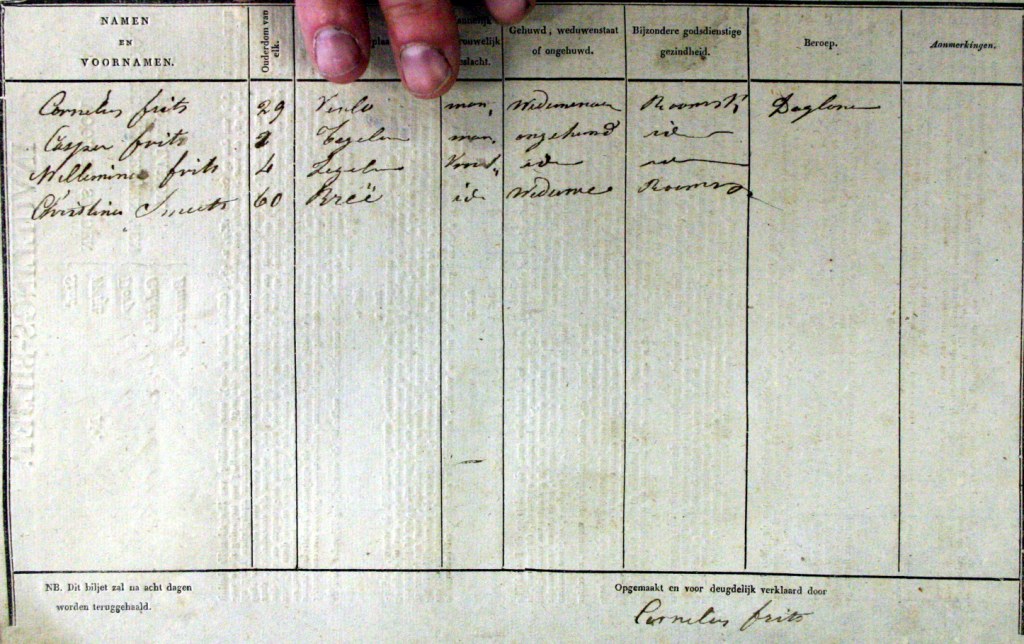 NAMEN EN VOORNAMEN. Ouderdom van elk. Gehuwd, weduwenstaat of ongehuwd. Bijzondere godsdienstige gezindheid. Beroep. Aanmerkingen.
Cornelus frits 29 Venlo man, Roomsch Dagloner
Casper frits Tegelen man. ongehuwd id
Willemina frits 4 Tegelen Vrouw. id id
Christina Smeets 60 Breë id Weduwe Rooms
NB. Dit biljet zal na acht dagen
worden teruggehaald.
Opgemaakt en voor deugdelijk verklaard door
Cornelus frits